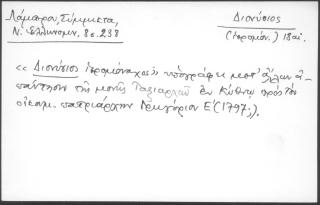 Λάμπρου, Σύμμικτα,
Ν. Ἑλληνομν. 8ος 238
Διονύσιος
(ἱερομόν.) 18 αἰ.
« Διονύσιος ἱερομόναχος» ὑπογράφει μετ' ἄλλων ἀ-
πάντησιν τῆς μονῆς Ταξιαρχῶν ἐν Κύθνῳ πρὸς τὸν
οἰκουμ. πατριάρχην Γρηγόριον Ε' (1797;).